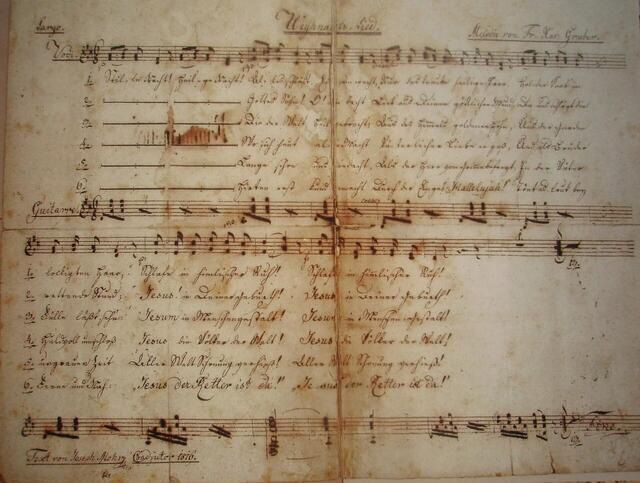 Largo. Weyhnachts-Lied. Melodie von Fr. Xav. Gruber.
1. Stil-le Nacht! Heil-ge Nacht! Al-les schläft, Ein sam wacht, Nur das traute heilige Paar. Holder Knab im
2. Gottes Sohn! O! wie lacht Lieb aus Deinem göttlichen Mund, Da schlägt
3. Die der Welt Heil gebracht, Aus des Himmels goldenen Höhn, Uns der Gnaden
4. Wo sich heut alle Macht Väterlicher Liebe ergoß, Und als Bruder
5. Lange schon uns bedacht, Als der Herr vom Grimme befreyt, In der Väter
6. Hirten erst kund gemacht Durch der Engel Hallelujah! Tönt es laut bey
Guitarre
1. lockigten Haar; Schlafe in himlischer Ruh! Schlafe in himlischer Ruh!
2. rettende Stund; Jesus! in Deiner Geburth! Jesus in Deiner Geburth!
3. Fülle läßt sehn: Jesum in Menschengestalt! Jesum in Menschengestalt!
4. Huldvoll umschloß Jesus die Völker der Welt! Jesus die Völker der Welt!
5. urgrauen Zeit Aller Welt Schonung verhieß! Aller Welt Schonung verhieß.
6. Ferne und Nah: Jesus der Retter ist da! Jesus der Retter ist da!
Fine
Text von Joseph Mohr Coadjutor 1816.